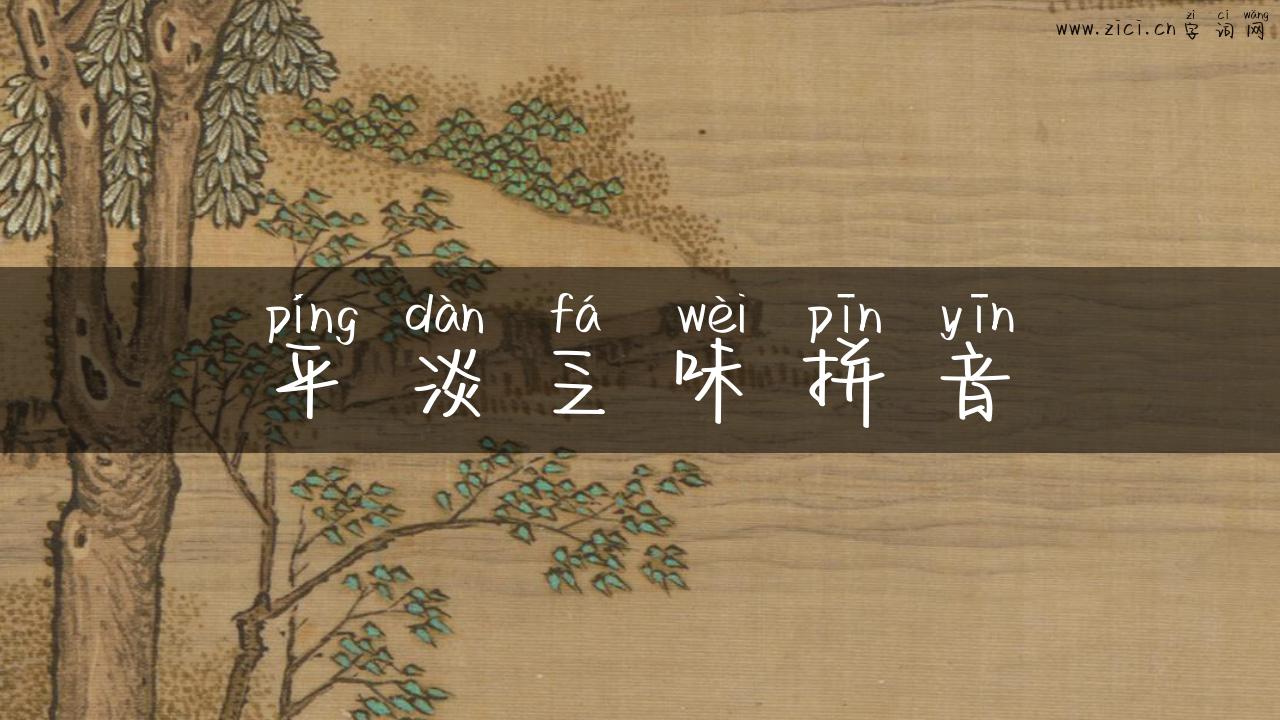 zì cí wǎng
www.zici.cn 字词网
píng dàn fá wèi pīn yīn
平淡乏味拼音